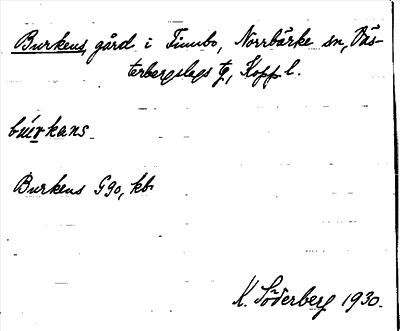 Burkens, gård i Finnbo, Norrbärke sn, Väs-
terbergslags tg, Koppl.
búrkans
Burkens 590, kb
K. Söderberg 1930.